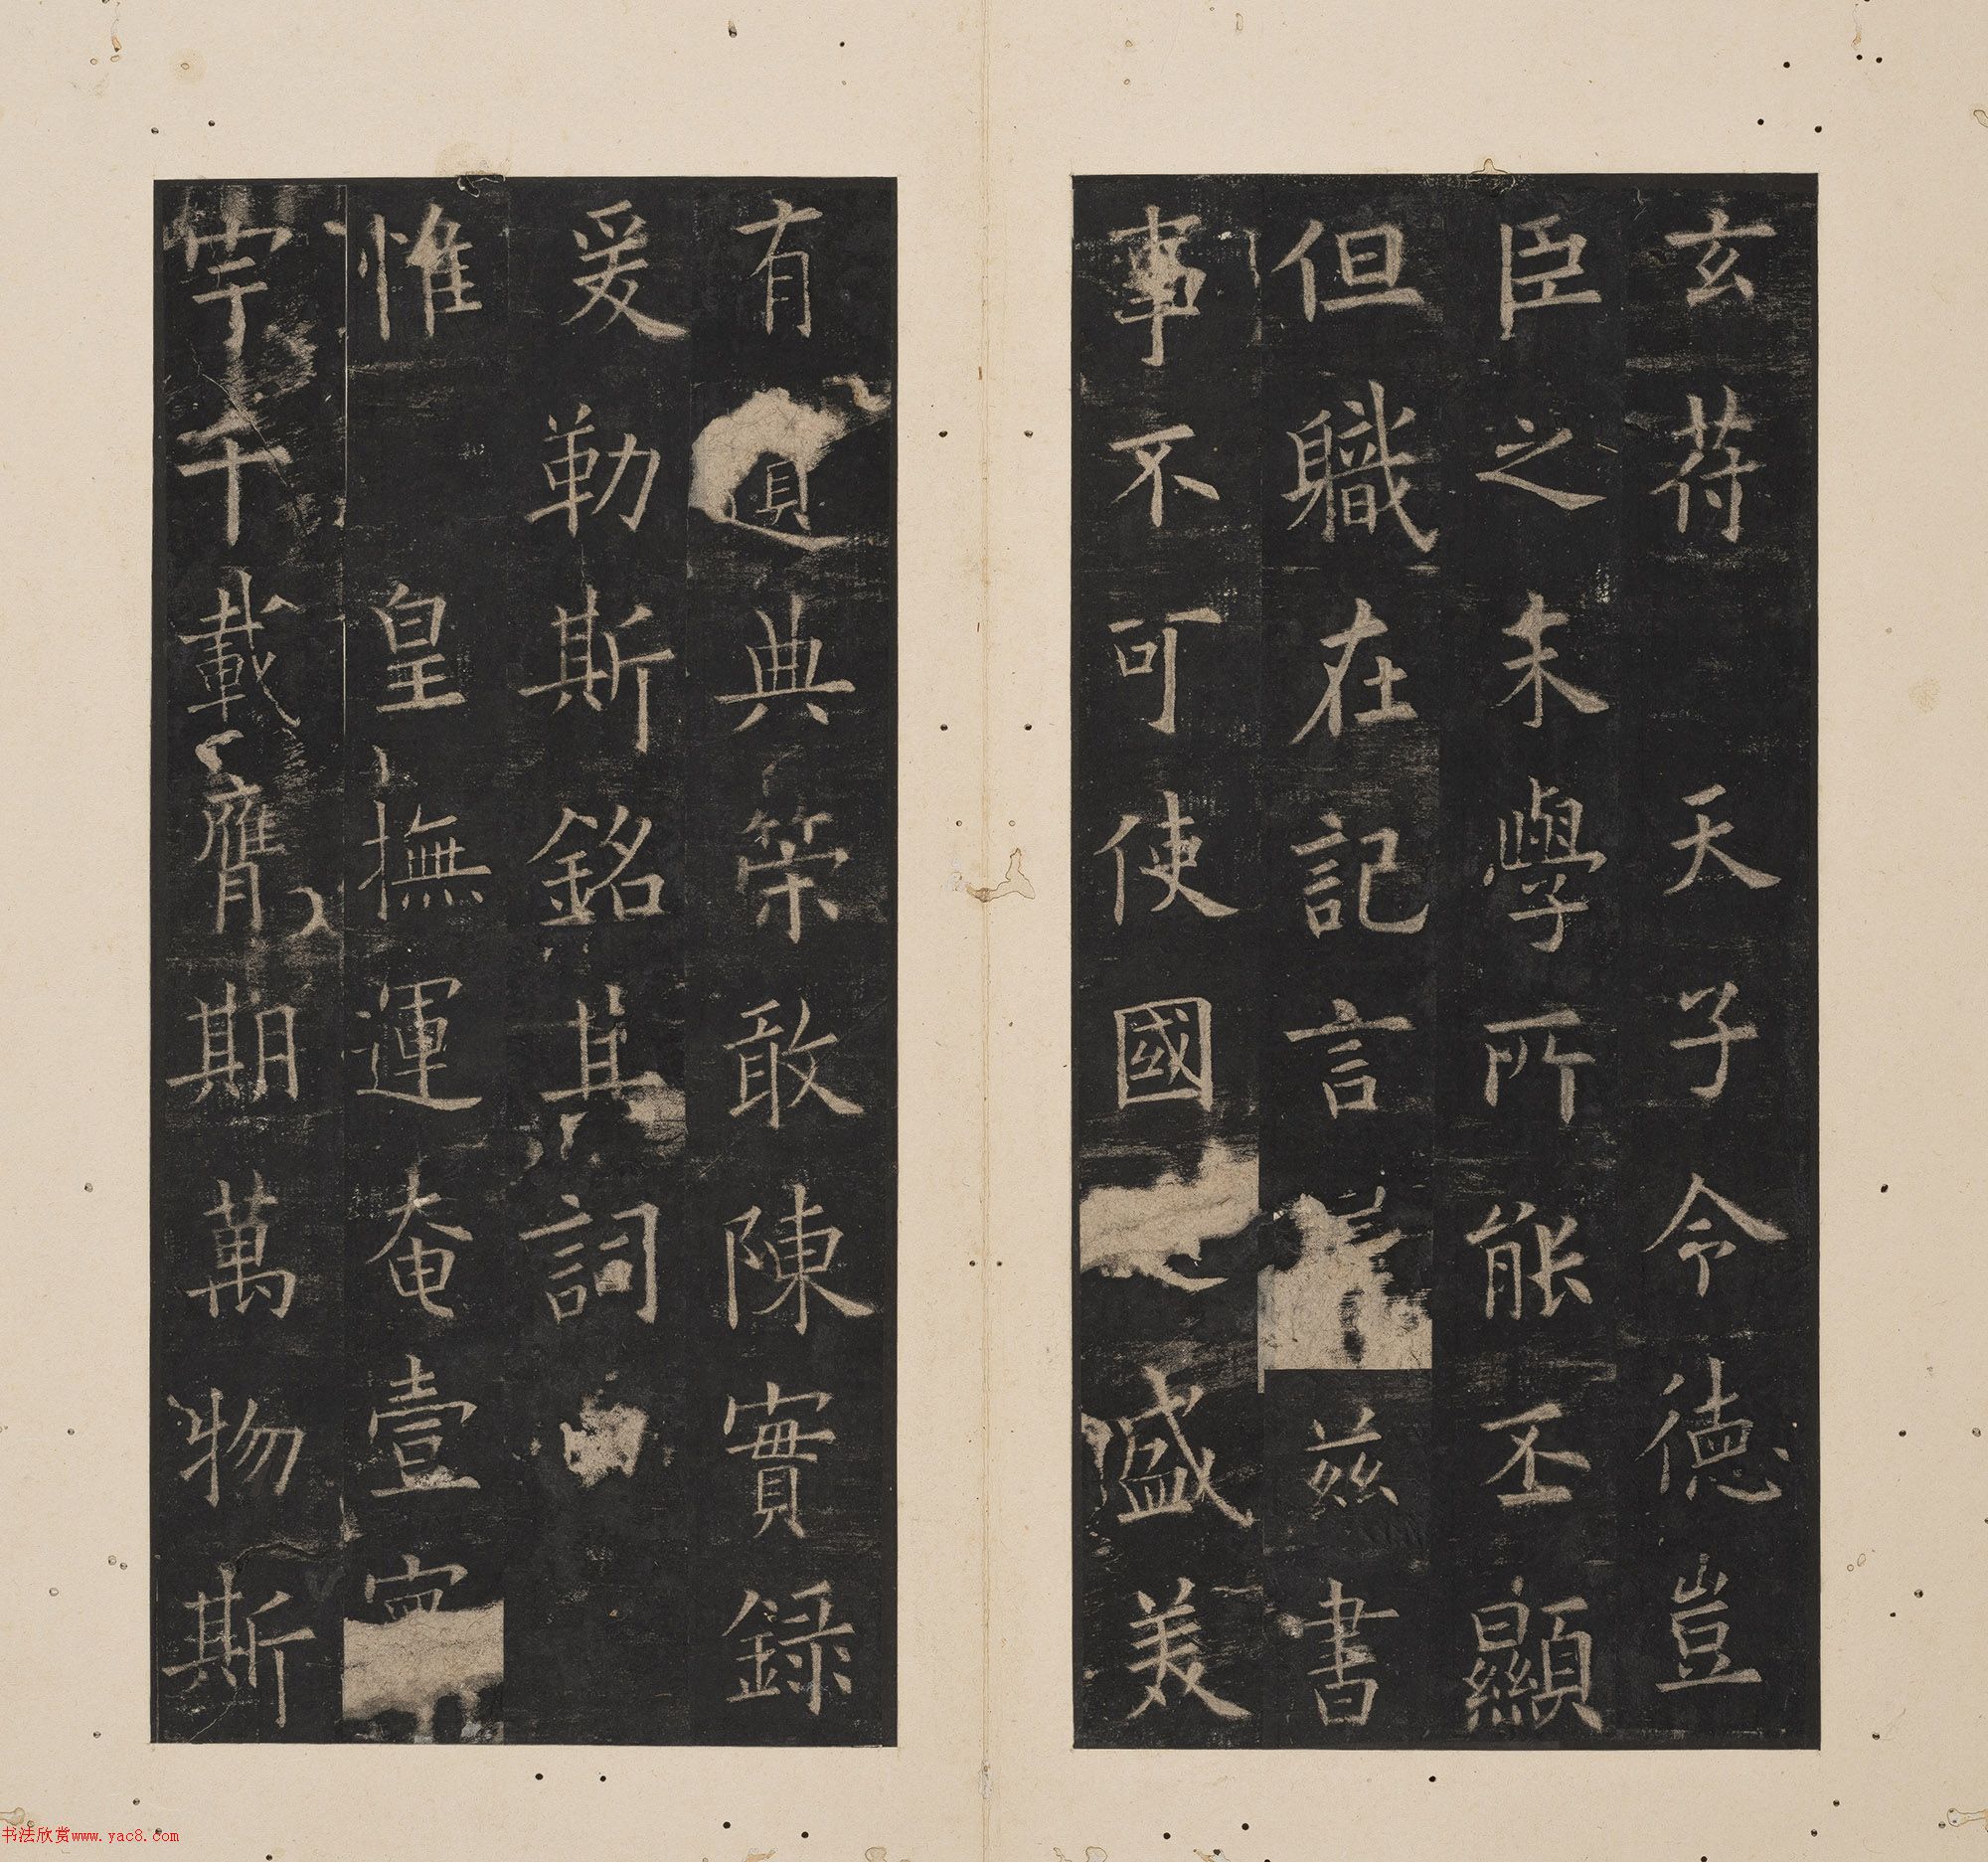 玄苻　天子令德豈
臣之末學所能丕顯
但職在記言　兹書
事不可使國　盛美
有遺典策敢陳實錄
爰勒斯銘其詞
惟　皇撫運奄壹寰
宇千載膺期萬物斯
书法欣赏www.yac8.com